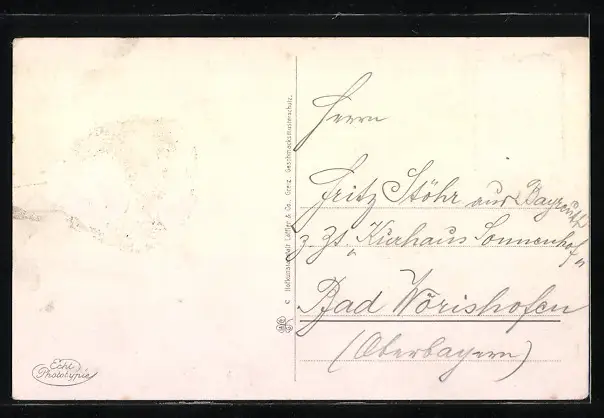 Herrn
Fritz Stöhr aus Bayreuth
z. Zt. „Kurhaus Sonnenhof"
Bad Wörishofen
(Oberbayern)
© Hofkunstanstalt Löffler & Co. Greiz. Geschmacksmusterschutz.
Echt
Phototypie